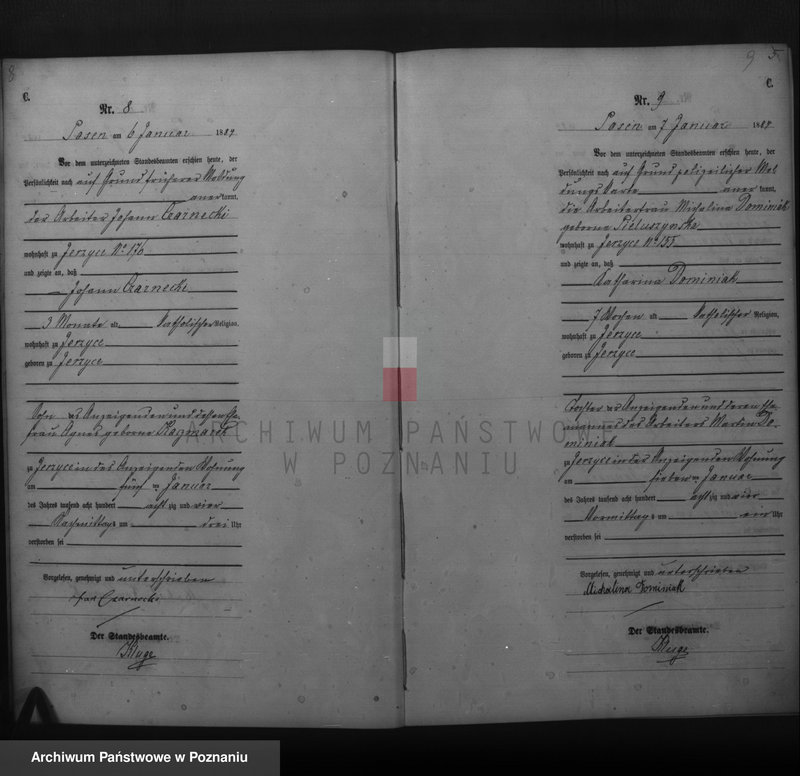 8
C.
Nr. 8
Posen am 6 Januar 1884
Vor dem unterzeichneten Standesbeamten erschien heute, der
Persönlichkeit nach auf Grund früherer Meldung
anerkannt,
der Arbeiter Johann Czarnecki
wohnhaft zu Jerzyce No 170
und zeigte an, daß
Johann Czarnecki
3 Monate alt katholischer Religion,
wohnhaft zu Jerzyce
geboren zu Jerzyce
Sohn des Anzeigenden und dessen Ehe-
frau Agnes geborne
zu Jerzyce in des Anzeigenden Wohnung
am fünf ten Januar
des Jahres tausend acht hundert acht zig und vier
Nachmittags um drei Uhr
verstorben sei
Vorgelesen, genehmigt und unterschrieben
Jan Czarnecki
Der Standesbeamte.
Kluge
9 5
C.
Nr. 9
Posen am 7 Januar 1884
Vor dem unterzeichneten Standesbeamten erschien heute, der
Persönlichkeit nach auf Grund polizeilicher Mel
dungs Karte anerkannt,
die Arbeiterfrau Michalina Dominiak
geborne
wohnhaft zu Jerzyce No 155
und zeigte an, daß
Katharina Dominiak
7 Wochen alt katholischer Religion,
wohnhaft zu Jerzyce
geboren zu Jerzyce
Tochter der Anzeigenden und deren Ehe-
mannes des Arbeiters Martin Do-
miniak
zu Jerzyce in des Anzeigenden Wohnung
am sieben ten Januar
des Jahres tausend acht hundert acht zig und vier
Vormittags um ein Uhr
verstorben sei
Vorgelesen, genehmigt und unterschrieben
Michalina Dominiak
Der Standesbeamte.
Kluge
ARCHIWUM PAŃSTWOWE
W POZNANIU
Archiwum Państwowe w Poznaniu